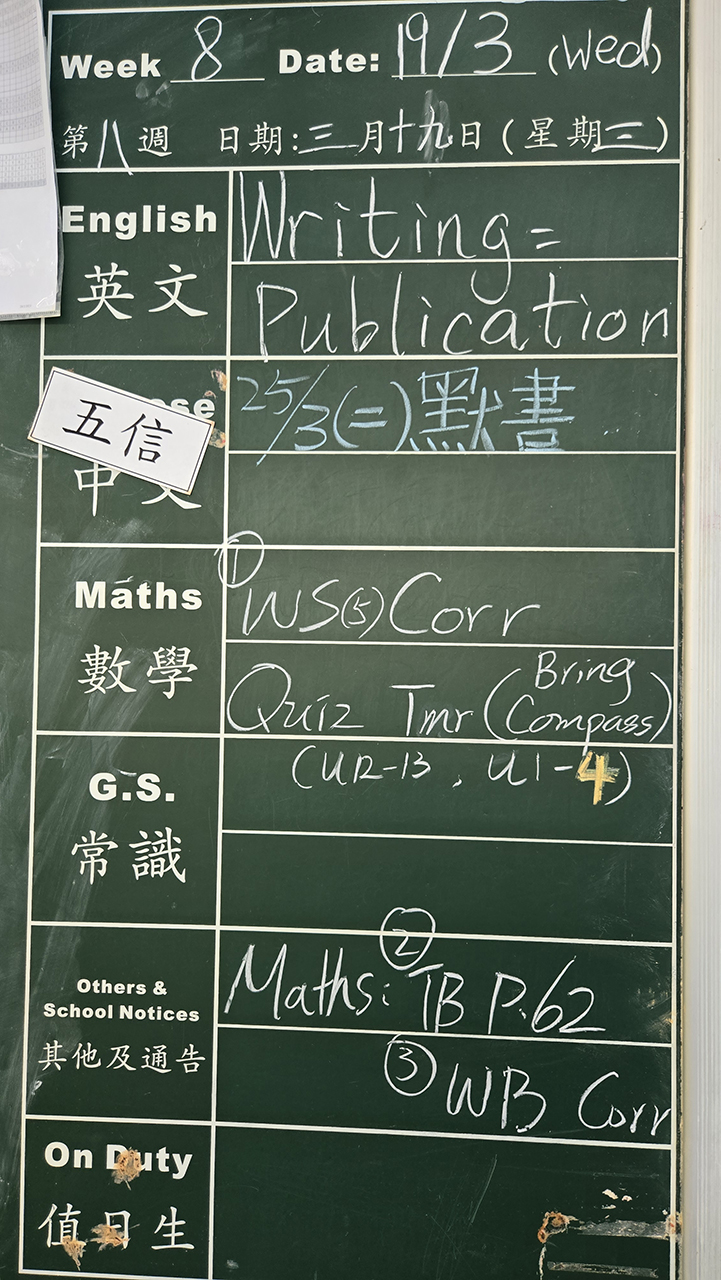 Week 8 Date: 19/3 (Wed)
第八週 日期:三月十九日(星期三)
English
英文
Writing =
Publication
五信
25/3(二)默書
中文
Maths
數學
① WS⑤ Corr
Quiz Tmr (Bring Compass)
(U12-13, U1-4)
G.S.
常識
Others &
School Notices
其他及通告
Maths: ② TB P.62
③ WB Corr
On Duty
值日生